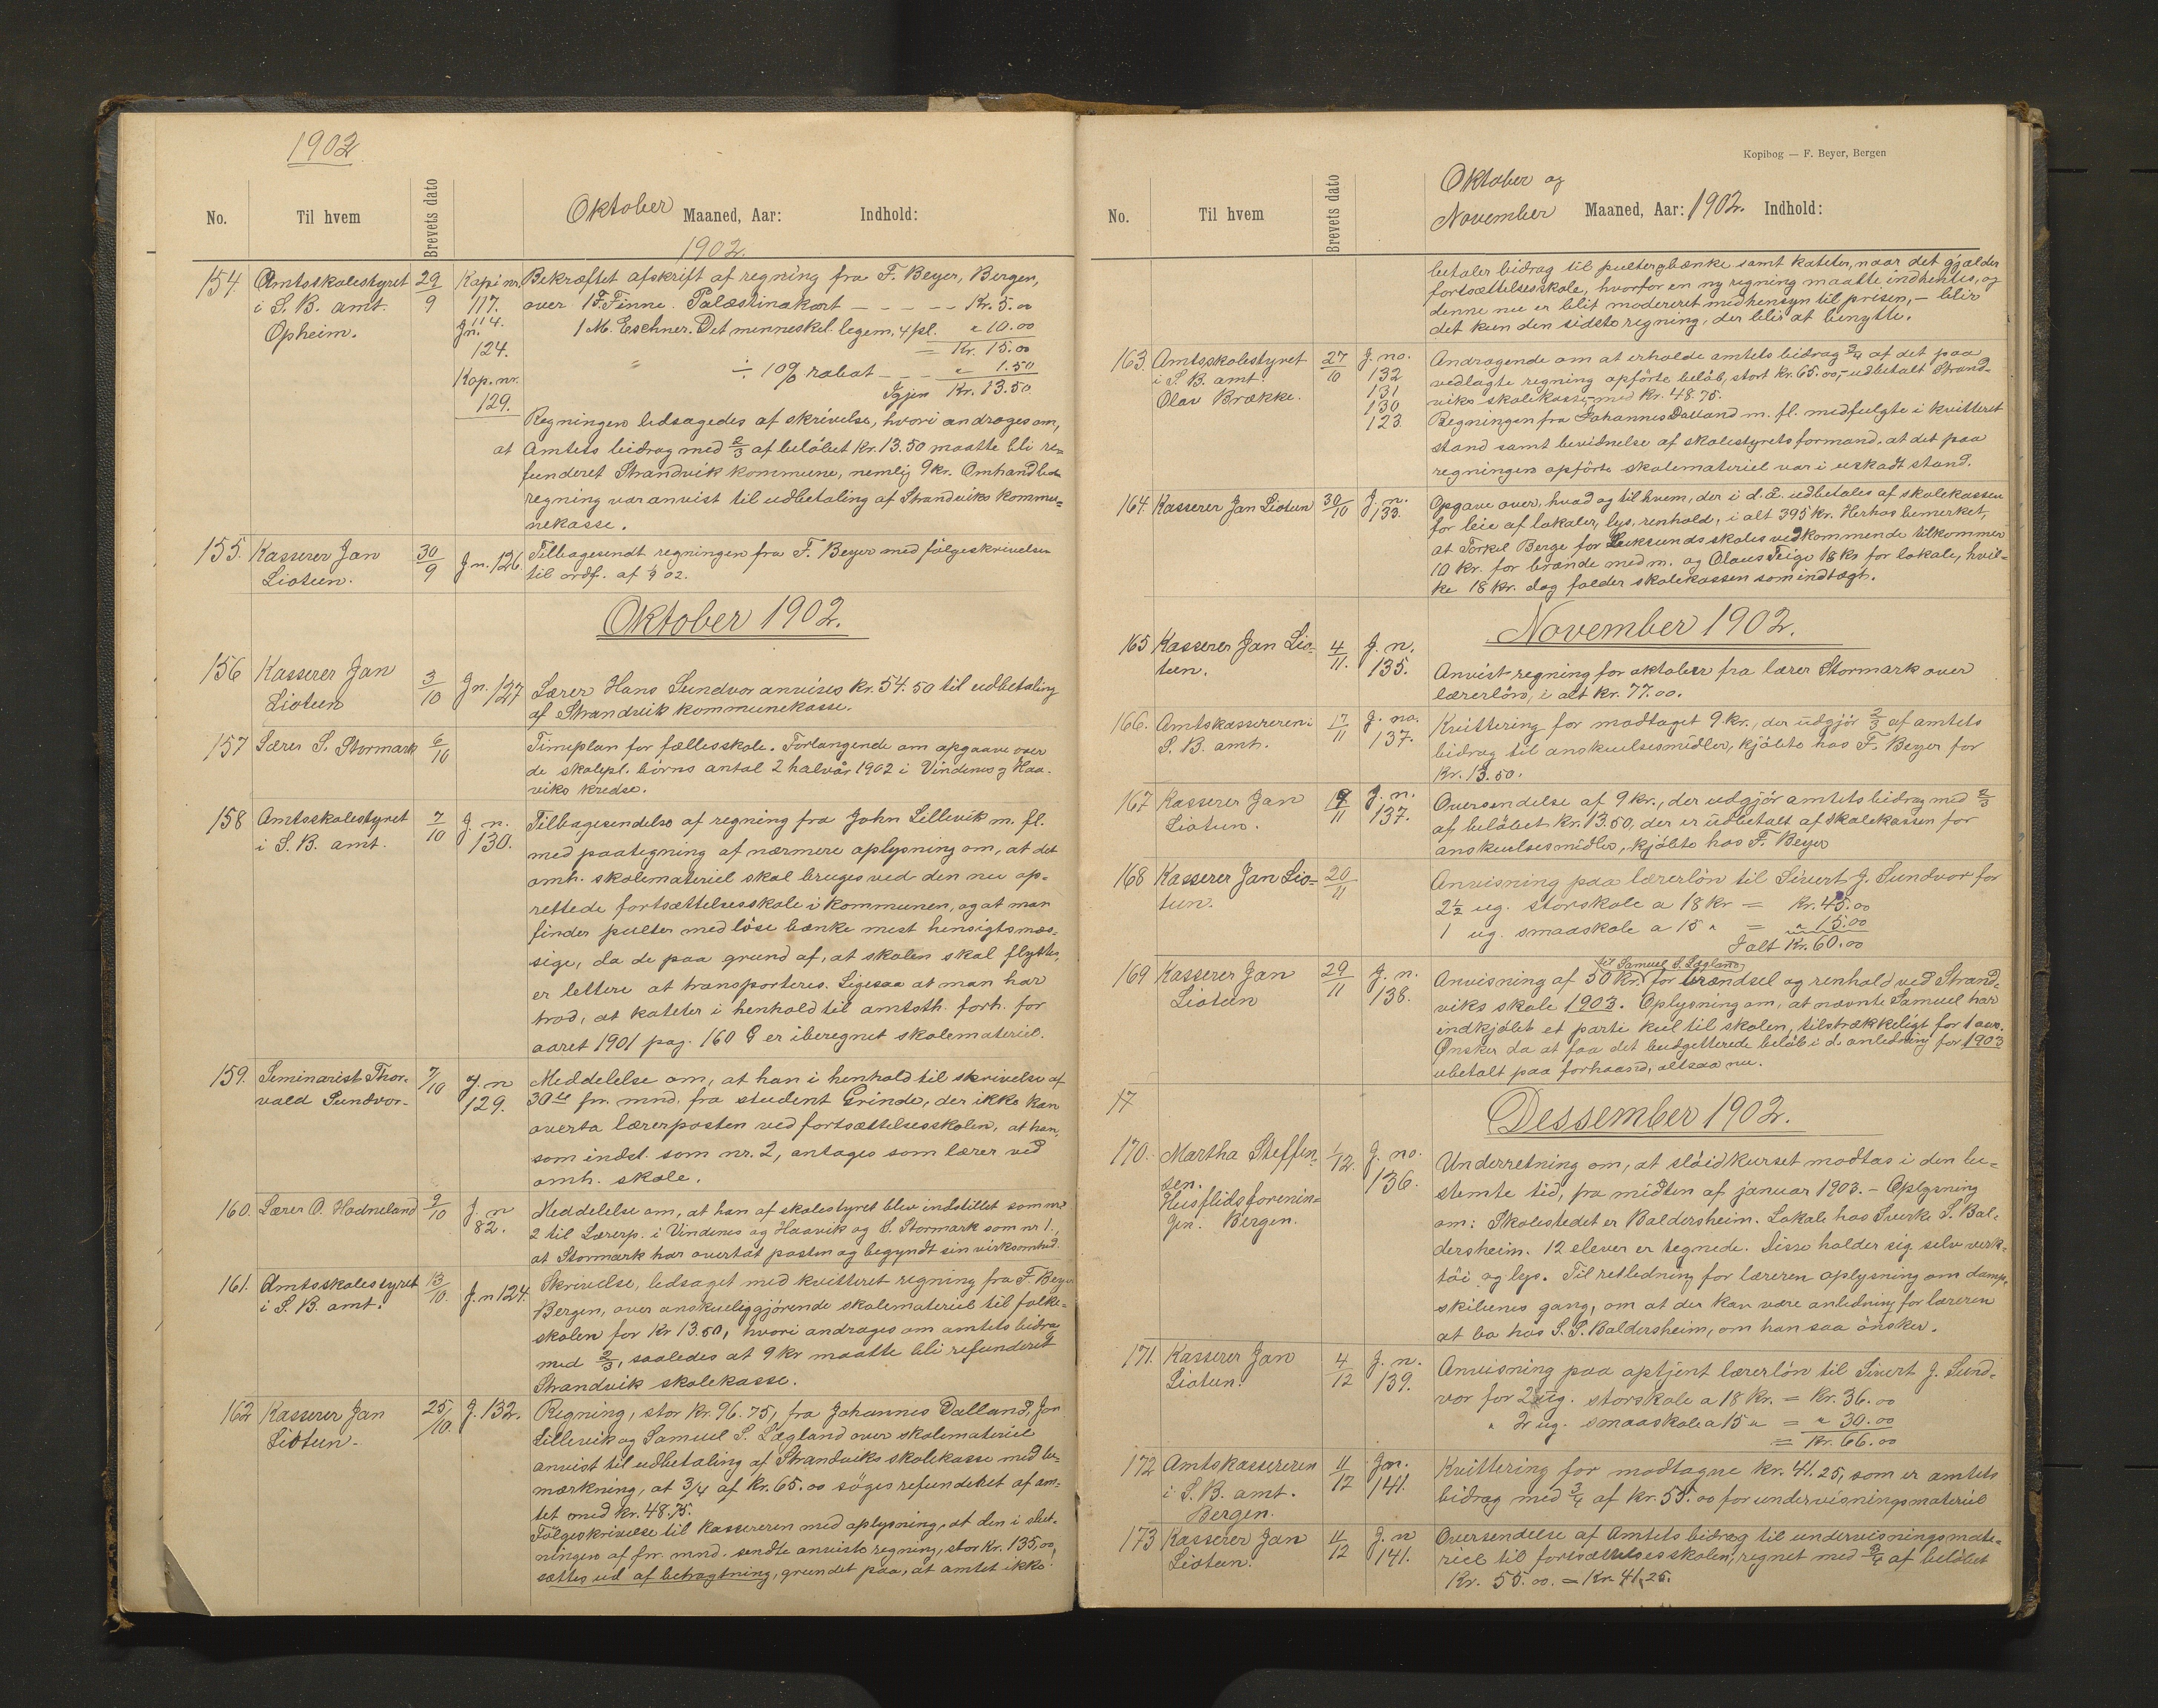 1902
No.
Til hvem
Brevets dato
Oktober Maaned, Aar: Indhold:
1902.
154. Amtsskolestyret 29/9 Kopi nr. Bekræftet afskrift af regning fra F. Beyer, Bergen,
i S. B. amt. 117. over 1 F. Finne. Palæstinakort — — — — Kr. 5.00
Opheim. J.n. 114. 1 M. Eschner. Det menneskel. legem, 4 pl. " 10.00
124. = Kr. 15.00
Kop. nr. ÷ 10% rabat — — " 1.50
129. Igjen Kr. 13.50
Regningen ledsagedes af skrivelse, hvori andrages om,
at Amtets bidrag med 2/3 af beløbet Kr. 13.50 maatte bli re-
funderet Strandvik kommune, nemlig 9 kr. Omhandlede
regning var anvist til udbetaling af Strandviks kommu-
nekasse.
155. Kasserer Jan 30/9 J.n. 126. Tilbagesendt regningen fra F. Beyer med følgeskrivelse
Liotun. til ordf. af 1/9 02.
Oktober 1902.
156 Kasserer Jan 3/10 J.n. 127 Lærer Hans Sundvor anvises kr. 54.50 til udbetaling
Liotun af Strandvik kommunekasse.
157 Lærer S. Stormark 6/10 Timeplan for fællesskole. Forlangende om opgaave over
de skolepl. børns antal 2 halvår 1902 i Vindenes og Haa-
viks kredse.
158 Amtsskolestyret 7/10 J. n. Tilbagesendelse af regning fra John Lillevik m. fl.
i S. B. amt. 130. med paategning af nærmere oplysning om, at det
omh. skolemateriel skal bruges ved den nu op-
rettede fortsættelsesskole i kommunen, og at man
finder pulter med løse bænke mest hensigtsmæs-
sige, da de paa grund af, at skolen skal flyttes,
er lettere at transporteres. Ligesaa at man har
trod, at kateter i henhold til amtsth. forh. for
aaret 1901 pag. 160 § er iberegnet skolemateriel.
159. Seminarist Thor- 7/10 J. n Meddelelse om, at han i henhold til skrivelse af
vald Sundvor. 129. 30te fr. mnd. fra student Grinde, der ikke kan
overta lærerposten ved fortsættelsesskolen, at han,
som indst. som nr. 2, antages som lærer ved
omh. skole.
160. Lærer O. Hodneland 9/10 J. n Meddelelse om, at han af skolestyret blev indstillet som nr
82. 2 til Lærerp. i Vindenes og Haavik og S. Stormark som nr 1.,
at Stormark har overtat posten og begyndt sin virksomhed.
161. Amtsskolestyret 13/10. J. n 124. Skrivelse, ledsaget med kvitteret regning fra F. Beyer
i S. B. amt. Bergen, over anskueliggjørende skolemateriel til folke-
skolen for Kr 13.50, hvori andrages om amtets bidrag
med 2/3, saaledes at 9 kr maatte bli refunderet
Strandvik skolekasse.
162 Kasserer Jan 25/10. J. 132. Regning, stor kr. 96.75, fra Johannes Dalland, Jon
Liotun. Lillevik og Samuel S. Lægland over skolemateriel
anvist til udbetaling af Strandviks skolekasse med be-
mærkning, at 3/4 af kr. 65.00 søges refunderet af am-
tet med kr. 48.75.
Følgeskrivelse til kassereren med oplysning, at den i slut-
ningen af fr. mnd. sendte anviste regning, stor kr. 135,00,
sættes ud af betragtning, grundet paa, at amtet ikke
Kopibog — F. Beyer, Bergen
Oktober og
No.
Til hvem
Brevets dato
November Maaned, Aar: 1902. Indhold:
betaler bidrag til pulter og bænke samt kateter, naar det gjælder
fortsættelsesskole, hvorfor en ny regning maatte indhentes, og
denne nu er blit modereret med hensyn til prisen, — blir
det kun den sidste regning, der blir at benytte.
163. Amtsskolestyret 27/10 J. no. Andragende om at erholde amtets bidrag 3/4 af det paa
i S. B. amt. 132 vedlagte regning opførte beløb, stort kr. 65.00, — udbetalt Strand-
Olav Brække. 131 viks skolekasse, med kr. 48.75.
130 Regningen fra Johannes Dalland m. fl. medfulgte i kvitteret
123. stand samt bevidnelse af skolestyrets formand, at det paa
regningen opførte skolemateriel var i uskadt stand.
164. Kasserer Jan Liotun 30/10 J. n. Opgave over, hvad og til hvem, der i d. å. udbetales af skolekassen
133. for leie af lokaler, lys, renhold, i alt 395 kr. Herhos bemerket,
at Torkel Berge for Leiksunds skoles vedkommende tilkommer
10 kr. for brænde med m. og Olaus Teige 18 kr for lokale, hvil-
ke 18 kr. dog falder skolekassen som indtægt.
November 1902.
165 Kasserer Jan Lio- 4/11. J. n. Anvist regning for oktober fra lærer Stormark over
tun. 135. lærerløn, i alt kr. 77.00.
166. Amtskassereren i 17/11 J. no. Kvittering for modtaget 9 kr., der udgjør 2/3 af amtets
S. B. amt. 137. bidrag til anskuelsesmidler, kjøbte hos F. Beyer for
Kr. 13.50.
167 Kasserer Jan 19/11 J. n. Oversendelse af 9 kr., der udgjør amtets bidrag med 2/3
Liotun. 137. af beløbet kr. 13.50, der er udbetalt af skolekassen for
anskuelsesmidler, kjøbte hos F. Beyer
168 Kasserer Jan Lio- 20/11 Anvisning paa lærerløn til Sivert J. Sundvor for
tun. 2 1/2 ug. storskole a 18 kr = Kr. 45.00
1 ug. smaaskole a 15 " = " 15.00
Ialt Kr. 60.00
til Samuel S. Lægland
169 Kasserer Jan 29/11 J. n. Anvisning af 50 kr. for brændsel og renhold ved Strand-
Liotun 138. viks skole 1903. Oplysning om, at nævnte Samuel har
indkjøbt et parti kul til skolen, tilstrækkeligt for 1 aar.
Ønsker da at faa det budgetterede beløb i d. anledning for 1903
ubetalt paa forhaand, altsaa nu.
17
Dessember 1902.
170. Martha Steffen- 1/12. J. no. Underretning om, at sløidkurset modtas i den be-
sen. 136. stemte tid, fra midten af januar 1903. — Oplysning
Husflidsforenin- om: Skolestedet er Baldersheim. Lokale hos Sverke S. Bal-
gen. Bergen. dersheim. 12 elever er tegnede. Disse holder sig selv verk-
tøi og lys. Til retledning for læreren oplysning om damp-
skibenes gang, om at der kan være anledning for læreren
at bo hos S. S. Baldersheim, om han saa ønsker.
171. Kasserer Jan 4/12 J. n. Anvisning paa optjent lærerløn til Sivert J. Sund-
Liotun. 139. vor for 2 ug. storskole a 18 kr. = Kr. 36.00
" 2 ug. smaaskole a 15 " = " 30.00
= Kr. 66.00
172 Amtskassereren 11/12 J.n. Kvittering for modtagne kr. 41.25, som er amtets
i S. B. amt. 141. bidrag med 3/4 af kr. 55.00 for undervisningsmateriel
Bergen.
173 Kasserer Jan 11/12 J. n Oversendelse af Amtets bidrag til undervisningsmate-
Liotun. 141. riel til fortsættelsesskolen, regnet med 3/4 af beløbet
Kr. 55.00. = Kr. 41,25.